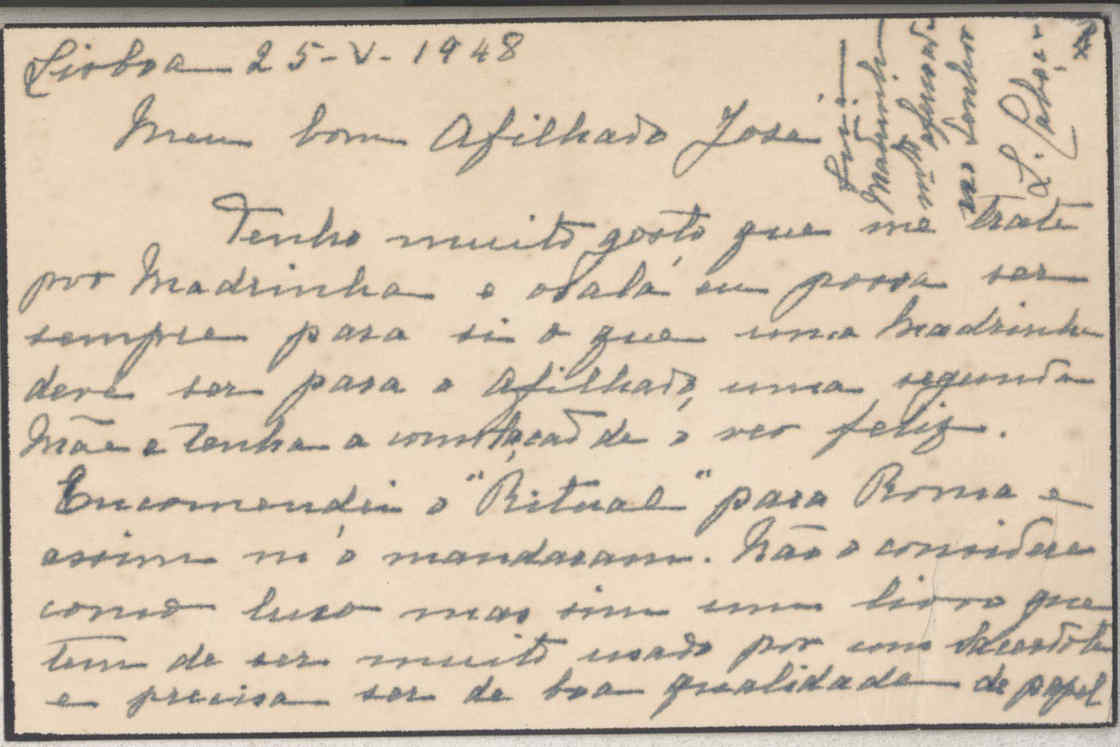 Lisboa 25-V-1948
Meu bom Afilhado José
Tenho muito gosto que me trate
por Madrinha e oxalá eu possa ser
sempre para si o que uma Madrinha
deve ser para o afilhado, uma segunda
Mãe e tenha a consolação de o ver feliz.
Encomendei o "Ritual" para Roma e
assim m'o mandaram. Não o considere
como luxo mas sim um livro que
tem de ser muito usado por um Sacerdote
e precisa ser de boa qualidade de papel
Madrinha
muito afeiçoada
no Senhor
L.